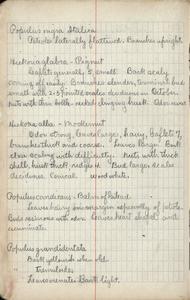 Populus nigra Italica
Petioles laterally flattened. Branches upright.
Hickoria glabra - Pignut
Leaflets generally 5, small. Bark scaly
coming off easily. Branches slender, terminal bud
small with 2-3 outer scales deciduous in October.
Nuts with thin hulls, husk clinging husk. Odor
Hickoria alba - Mockernut
Odor strong, leaves large, hairy, leaflets 7,
branches thick and coarse. Leaves large. Bark
close scaling with difficulty. Nuts with thick
shell, husk thick, ridges 4. Bud large, scales
deciduous. Conical. Wood white.
Populus candicans - Balm of Gilead
Leaves hairy on margin especially of petiole.
Buds resinous with odor. Leaves heart shaped and
acuminate.
Populus grandidentata
Bark yellowish when old
" Tremuloides
Leaves ovate. Bark light.